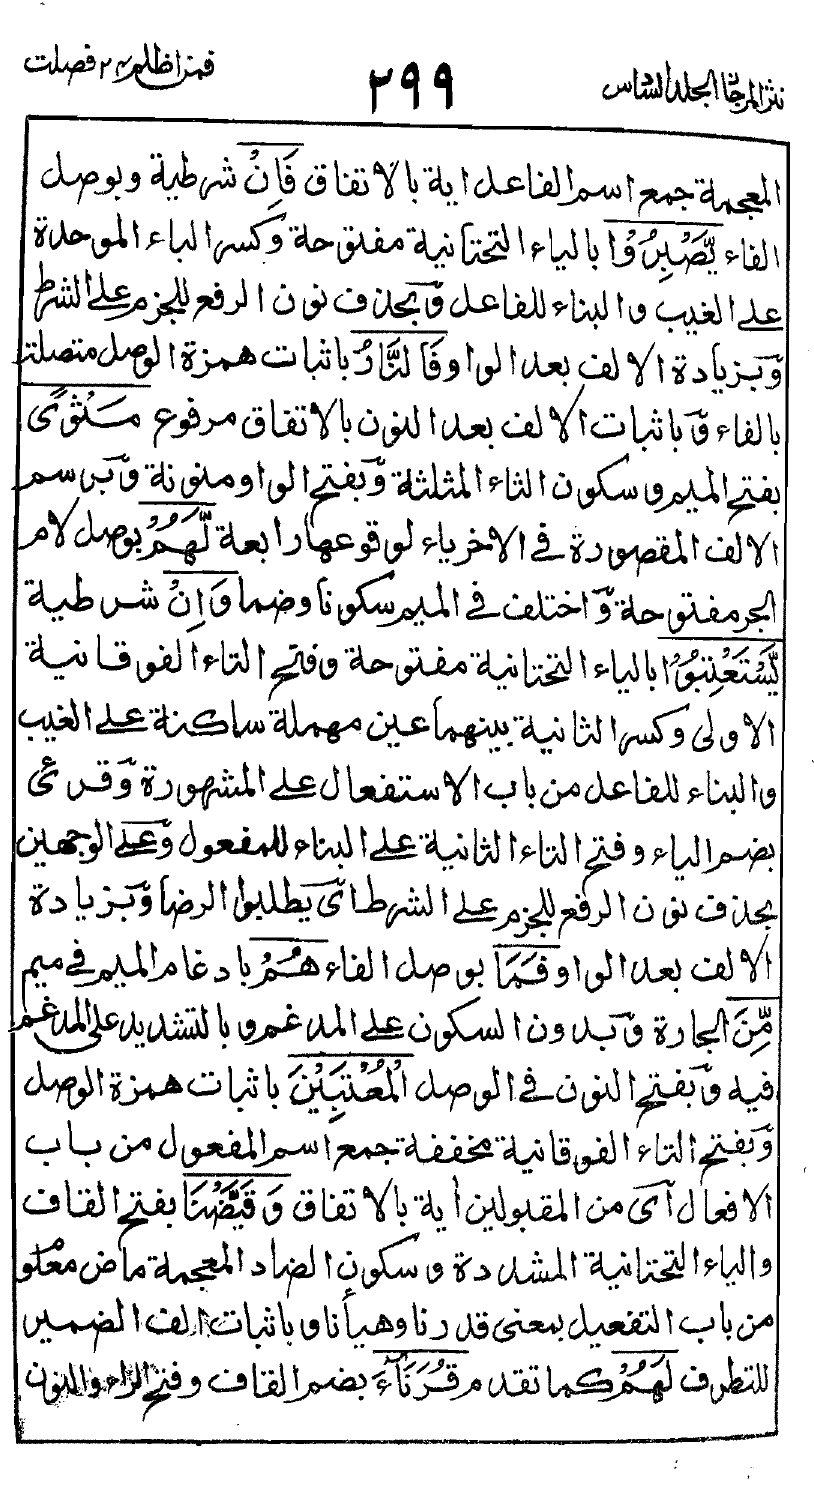 نثر المرجان المجلد السادس ٢٩٩ فمن اظلم ٢٤ فصلت
المعجمة جمع اسم الفاعل اية بالاتفاق فَاِنْ شرطية وبوصل
الفاء يَّصْبِرُوْا بالياء التحتانية مفتوحة وكسر الباء الموحدة
على الغيب والبناء للفاعل وبحذف نون الرفع للجزم على الشرط
وبزيادة الالف بعد الواو فَالنَّارُ باثبات همزة الوصل متصلة
بالفاء وباثبات الالف بعد النون بالاتفاق مرفوع مَثْوًى
بفتح الميم وسكون الثاء المثلثة وبفتح الواو منونة وبرسم
الالف المقصورة في الاخر ياء لوقوعها رابعة لَّهُمْ بوصل لام
الجر مفتوحة واختلف في الميم سكونا وضما وَاِنْ شرطية
يَّسْتَعْتِبُوْا بالياء التحتانية مفتوحة وفتح التاء الفوقانية
الاولى وكسر الثانية بينهما عين مهملة ساكنة على الغيب
والبناء للفاعل من باب الاستفعال على المشهورة وقرئ
بضم الياء وفتح التاء الثانية على البناء للمفعول وعلى الوجهين
بحذف نون الرفع للجزم على الشرط اى يطلبوا الرضا وبزيادة
الالف بعد الواو فَمَا بوصل الفاء هُمْ بادغام الميم في ميم
مِّنَ الجارة وبدون السكون على المدغم وبالتشديد على المدغم
فيه وبفتح النون في الوصل الْمُعْتَبِيْنَ باثبات همزة الوصل
وبفتح التاء الفوقانية مخففة جمع اسم المفعول من باب
الافعال اى من المقبولين أية بالاتفاق وَقَيَّضْنَا بفتح القاف
والياء التحتانية المشددة وسكون الضاد المعجمة ماض معلو
من باب التفعيل بمعنى قدرنا وهيأنا وباثبات الف الضمير
للتطرف لَهُمْ كما تقدم قُرَنَآءَ بضم القاف وفتح الراء والنون